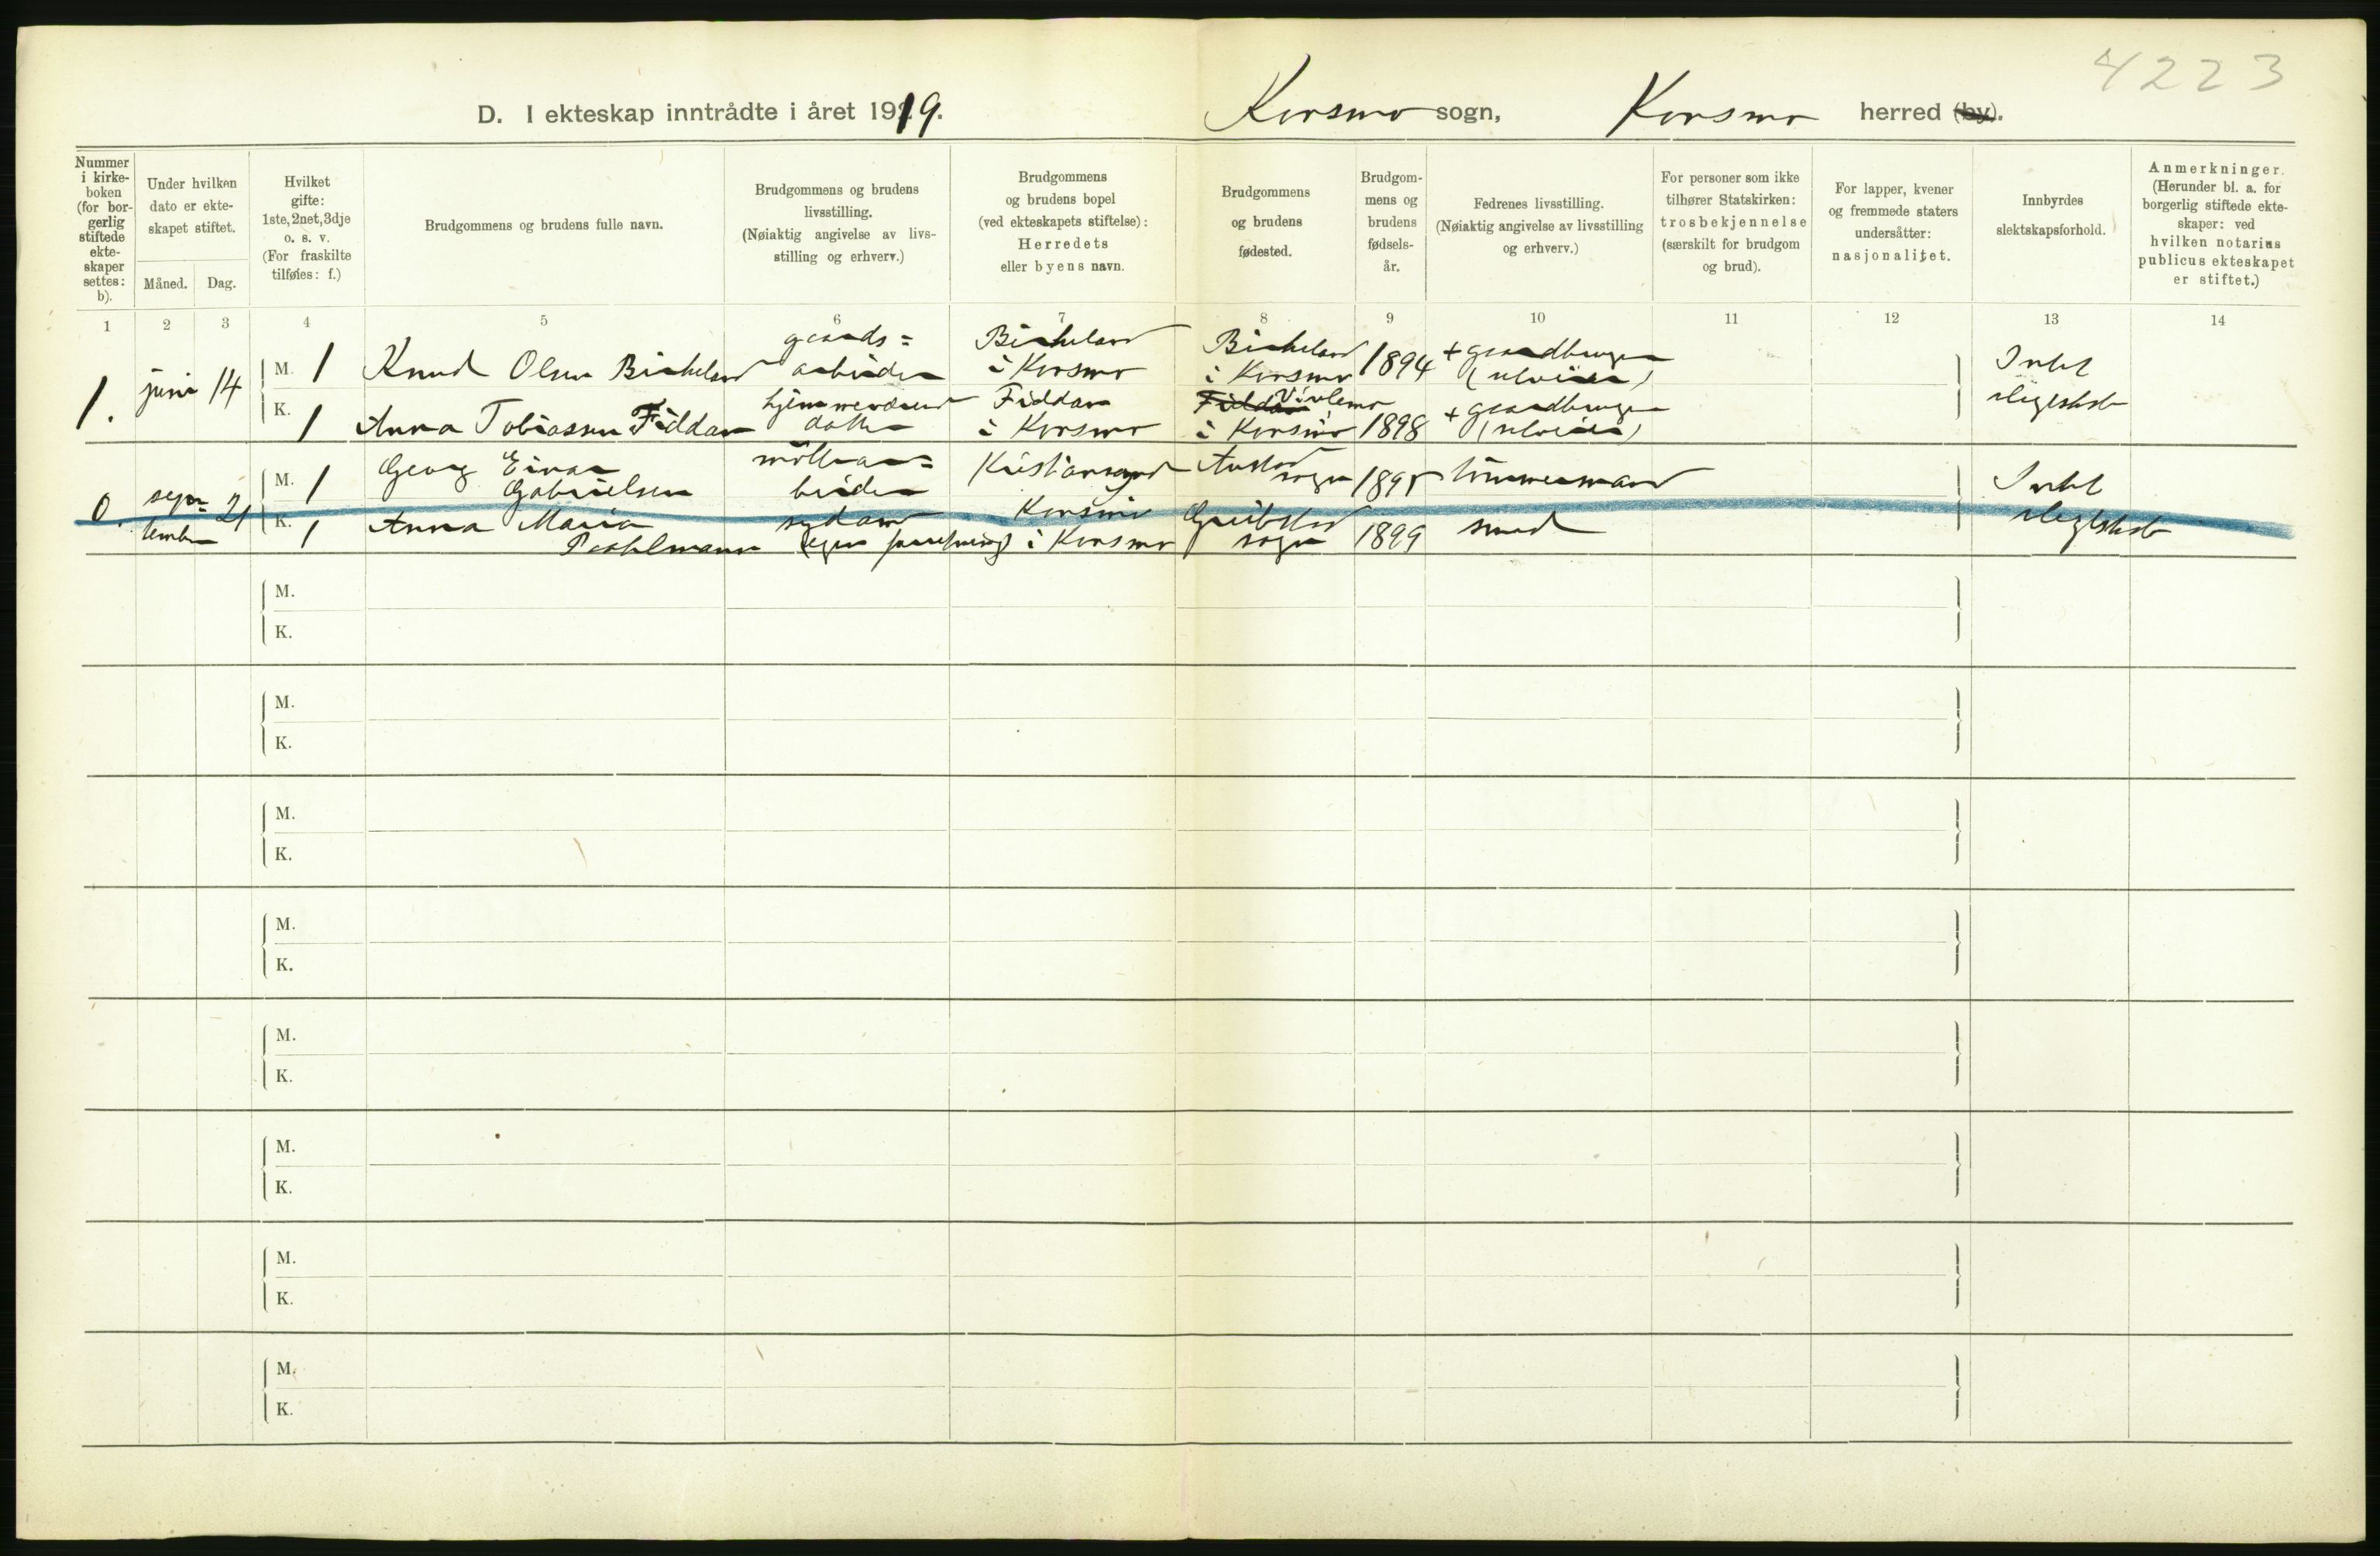 4223
D. I ekteskap inntrådte i året 1919.
Korsmo sogn, Korsmo herred (by).
Nummer i kirkeboken (for borgerlig stiftede ekteskaper settes: b).
Under hvilken dato er ekteskapet stiftet.
Måned. Dag.
Hvilket gifte: 1ste, 2net, 3dje o. s. v. (For fraskilte tilføies: f.)
Brudgommens og brudens fulle navn.
Brudgommens og brudens livsstilling. (Nøiaktig angivelse av livsstilling og erhverv.)
Brudgommens og brudens bopel (ved ekteskapets stiftelse): Herredets eller byens navn.
Brudgommens og brudens fødested.
Brudgommens og brudens fødselsår.
Fedrenes livsstilling. (Nøiaktig angivelse av livsstilling og erhverv.)
For personer som ikke tilhører Statskirken: trosbekjennelse (særskilt for brudgom og brud).
For lapper, kvener og fremmede staters undersåtter: nasjonalitet.
Innbyrdes slektskapsforhold.
Anmerkninger. (Herunder bl. a. for borgerlig stiftede ekteskaper: ved hvilken notarius publicus ekteskapet er stiftet.)
1 2 3 4 5 6 7 8 9 10 11 12 13 14
1. juni 14 M. 1 Knud Olsen Birkeland gaards=arbeider Birkeland i Korsmo Birkeland i Korsmo 1894 + gaardbruger Intet
K. 1 Anna Tobiassen Fiddan hjemmeværend datter Fiddan i Korsmo i Korsmo 1898 + gaardbruger
0. september 21 M. 1 Georg Einar Gabrielsen Kristiansand sogn 1895 tömmermand Intet
K. 1 Anna Maria sydame (egen forretning) Korsmo i Korsmo sogn 1899 smed
M.
K.
M.
K.
M.
K.
M.
K.
M.
K.
M.
K.
M.
K.
M.
K.